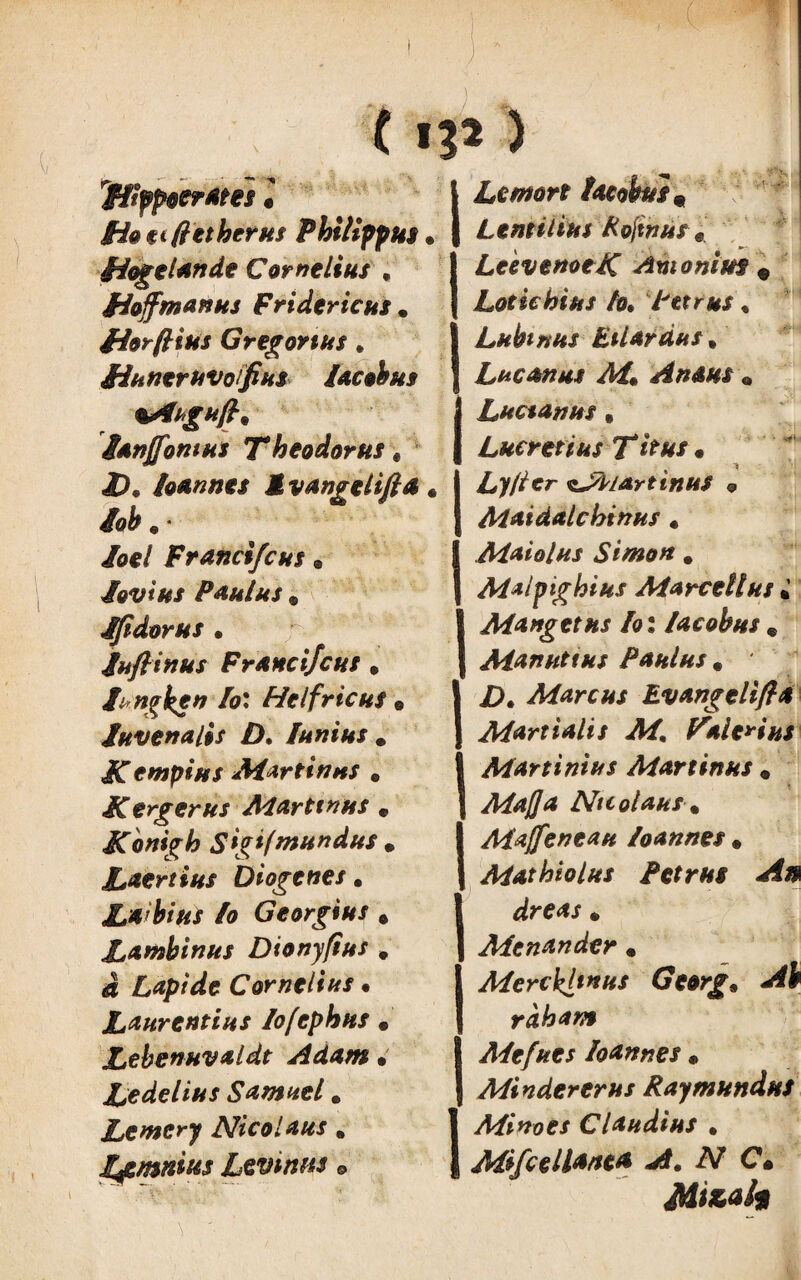 ( 132 )
Hippocrates .
Hoeuſtetherus Philippus .
Hogelande Cornelius .
Hoffmanus Fridericus .
Horſtius Gregorius .
Hunеruvolſius Iacobus
Auguſt.
Ianſſonius Theodorus .
D. Ioannes Evangeliſta .
Iob .
Ioel Franciſcus .
Iovius Paulus .
Iſidorus .
Iuſtinus Franciſcus .
Iungken Io: Helfricus .
Iuvenalis D. Iunius .
Kempius Martinus .
Kergerus Martinus .
Konigh Sigiſmundus .
Laertius Diogenes .
Labius Io Georgius .
Lambinus Dionyſius .
à Lapide Cornelius .
Laurentius Ioſephus .
Lebenuvaldt Adam .
Ledelius Samuel .
Lemery Nicolaus .
Lemnius Levinus .
Lemort Iacobus .
Lentilius Roſinus .
LeevenoeK Antonius .
Lotichius Io. Petrus .
Lubinus Eilardus .
Lucanus M. Anæus .
Lucianus .
Lucretius Titus .
Lyſter Martinus .
Maidalchinus .
Maiolus Simon .
Malpighius Marcellus .
Mangetus Io: Iacobus .
Manutius Paulus .
D. Marcus Evangeliſta
Martialis M. Valerius
Martinius Martinus .
Maſſa Nicolaus .
Maſſeneau Ioannes .
Mathiolus Petrus An
dreas .
Menander .
Mercklinus Georg. Ab
raham
Meſues Ioannes .
Mindererus Raymundus
Minoes Claudius .
Miſcellanea A. N C.
Mizal